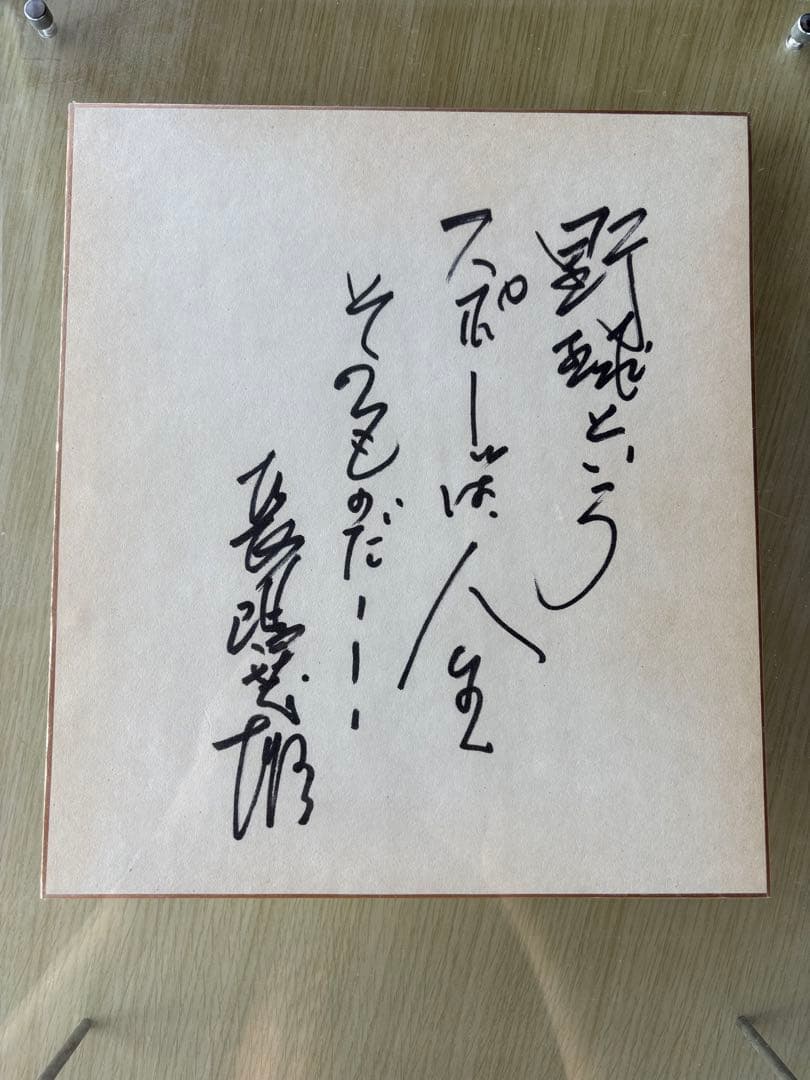 野球という
スポーツは、人生
そのものだーーー
長嶋茂雄